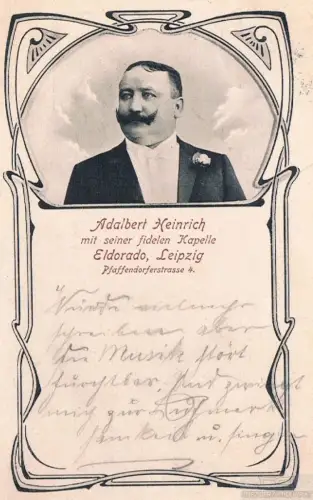 Adalbert Heinrich
mit seiner fidelen Kapelle
Eldorado, Leipzig
Pfaffendorferstrasse 4.
Würde vielmehr
schreiben aber
die Musik stört
furchtbar. Und zwingt
mich zur
u.